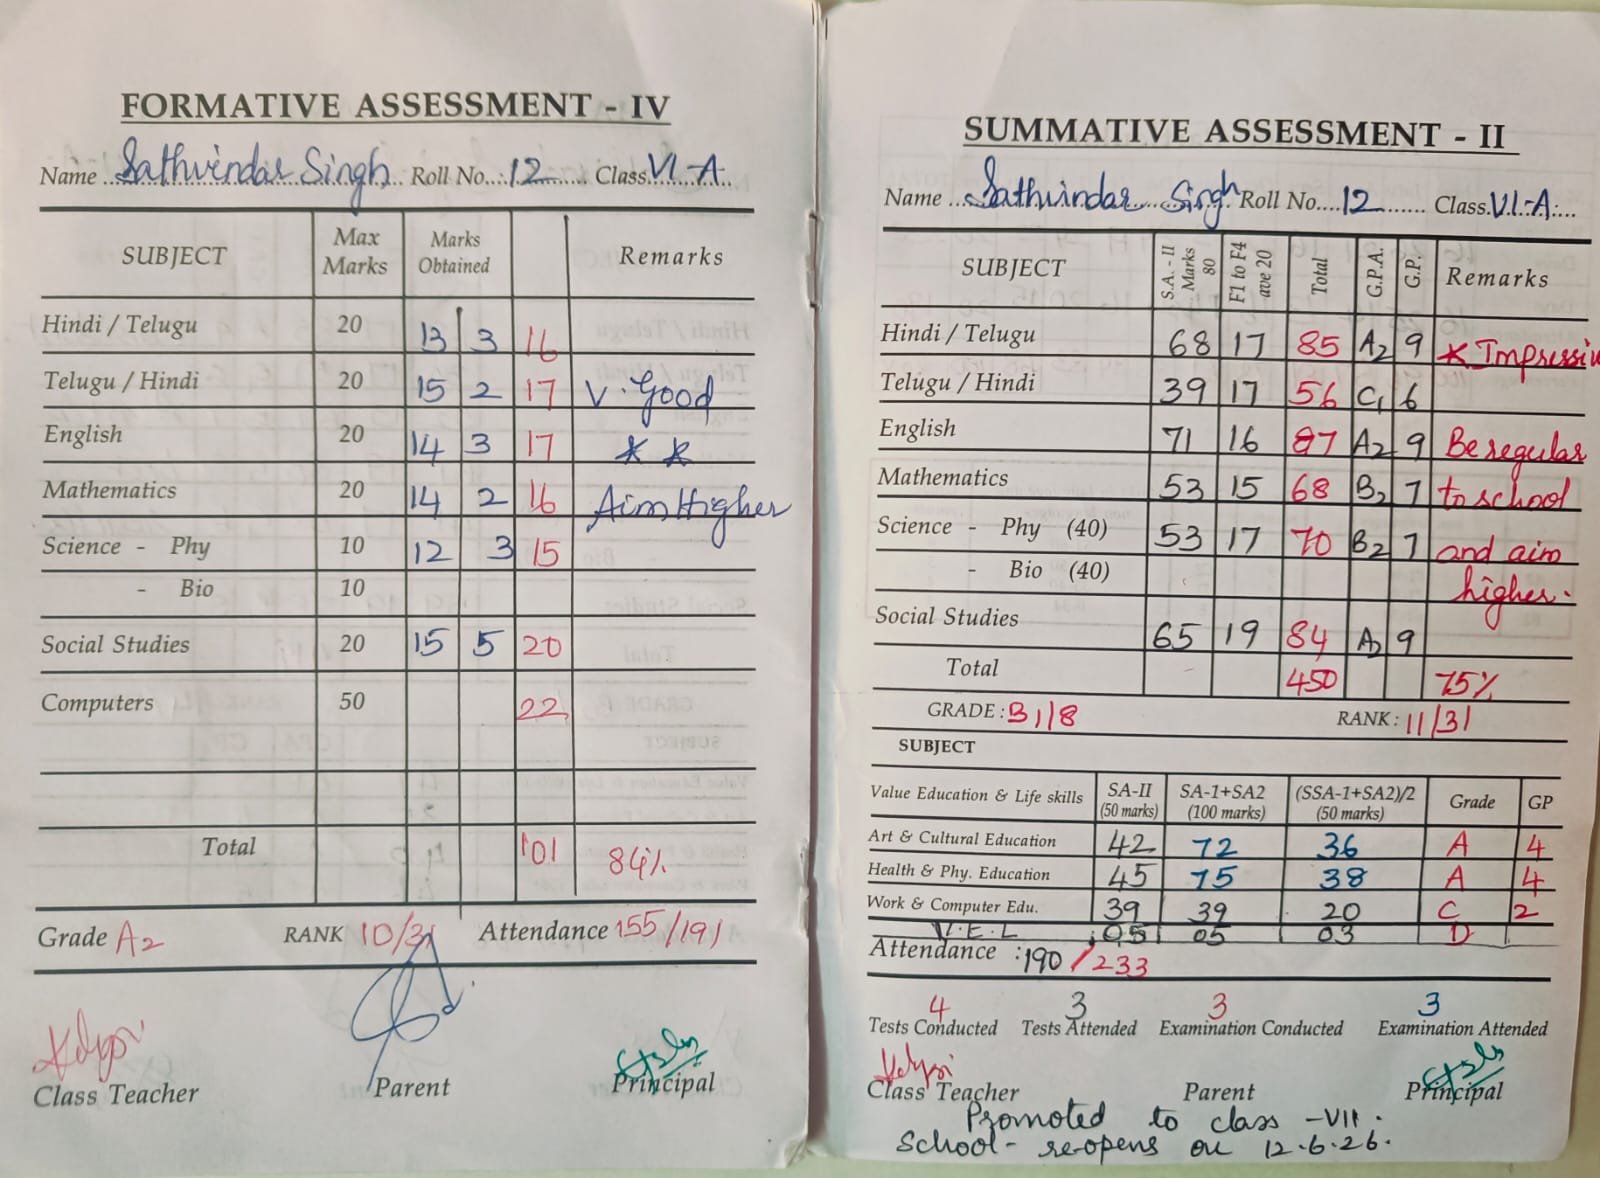 FORMATIVE ASSESSMENT - IV
Name Sathvindar Singh Roll No.: 12 Class VI-A
SUBJECT Max Marks Marks Obtained Remarks
Hindi / Telugu 20 13 3 16
Telugu / Hindi 20 15 2 17 V. Good
English 20 14 3 17 * *
Mathematics 20 14 2 16 Aim Higher
Science - Phy 10 12 3 15
- Bio 10
Social Studies 20 15 5 20
Computers 50 22
Total 101 84%
Grade A2 RANK 10/31 Attendance 155/191
Class Teacher Parent Principal
SUMMATIVE ASSESSMENT - II
Name Sathvindar Singh Roll No. 12 Class VI-A
SUBJECT S.A. - II Marks 80 F1 to F4 ave 20 Total G.P.A. G.P. Remarks
Hindi / Telugu 68 17 85 A2 9 * Impressive
Telugu / Hindi 39 17 56 C1 6
English 71 16 87 A2 9 Be regular
Mathematics 53 15 68 B2 7 to school
Science - Phy (40) 53 17 70 B2 7 and aim
- Bio (40) higher.
Social Studies 65 19 84 A2 9
Total 450 75%
GRADE : B1/8 RANK : 11/31
SUBJECT
Value Education & Life skills SA-II (50 marks) SA-1+SA2 (100 marks) (SSA-1+SA2)/2 (50 marks) Grade GP
Art & Cultural Education 42 72 36 A 4
Health & Phy. Education 45 75 38 A 4
Work & Computer Edu. 39 39 20 C 2
V.E.L 05 05 03 D
Attendance : 190/233
4 3 3 3
Tests Conducted Tests Attended Examination Conducted Examination Attended
Class Teacher Parent Principal
Promoted to class -VII.
School- re-opens on 12.6.26.